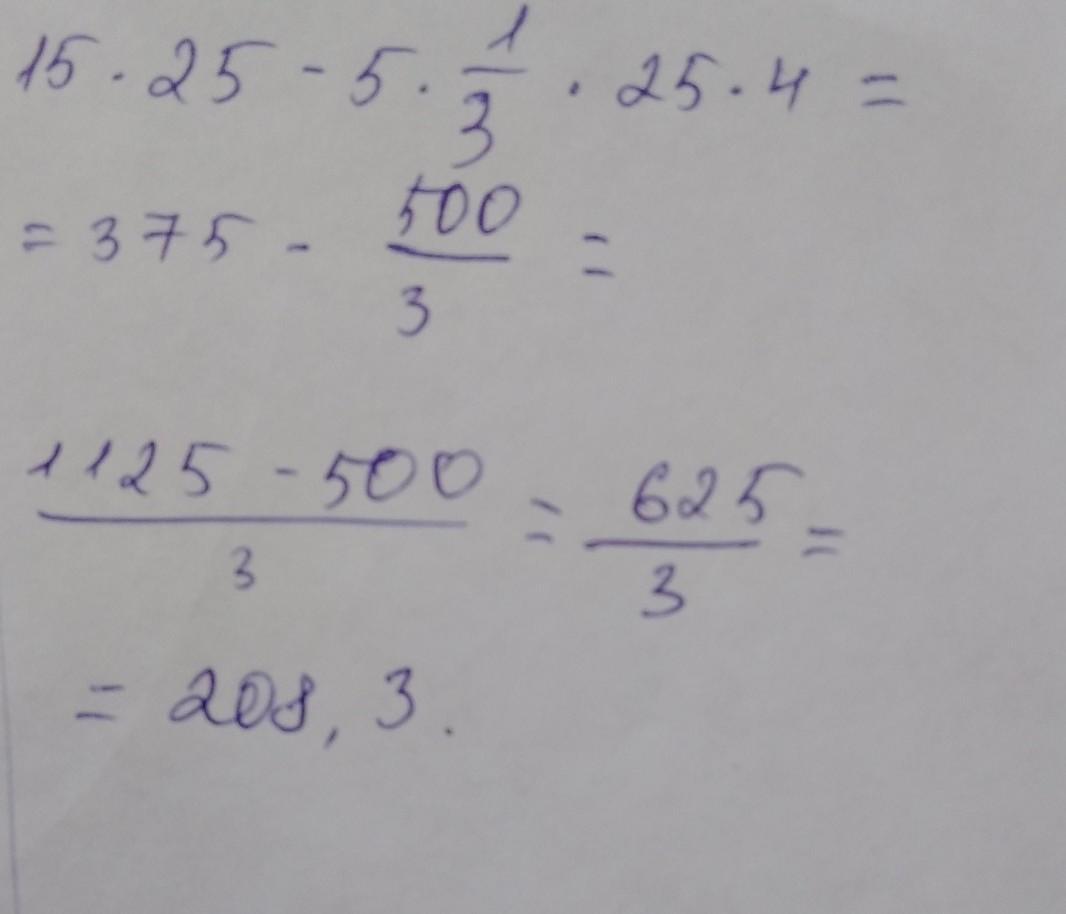 15 · 25 - 5 · 1/3 · 25 · 4 =
= 375 - 500/3 =
(1125 - 500)/3 = 625/3 =
= 208, 3.